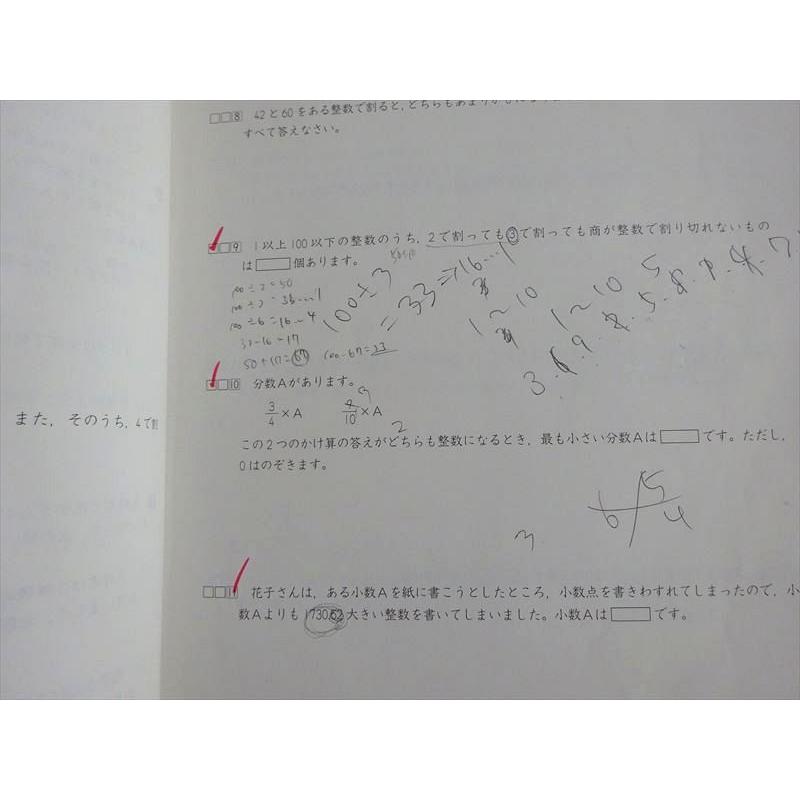 8 42と60をある整数で割ると,どちらもあまりが
すべて答えなさい。
9 1以上100以下の整数のうち,2で割っても3で割っても商が整数で割り切れないもの
は 個あります。
100÷2=50
100÷3=33…1
100÷6=16…4
33-16=17
50+17=67 100-67=33
100÷3
=33
⇒16…1
1~10
1~10
10 分数Aがあります。
3/4×A /10×A
また,そのうち,4で割
この2つのかけ算の答えがどちらも整数になるとき,最も小さい分数Aは です。ただし,
0はのぞきます。
5
6 4
3
花子さんは,ある小数Aを紙に書こうとしたところ,小数点を書きわすれてしまったので,小
数Aよりも1730.62大きい整数を書いてしまいました。小数Aは です。